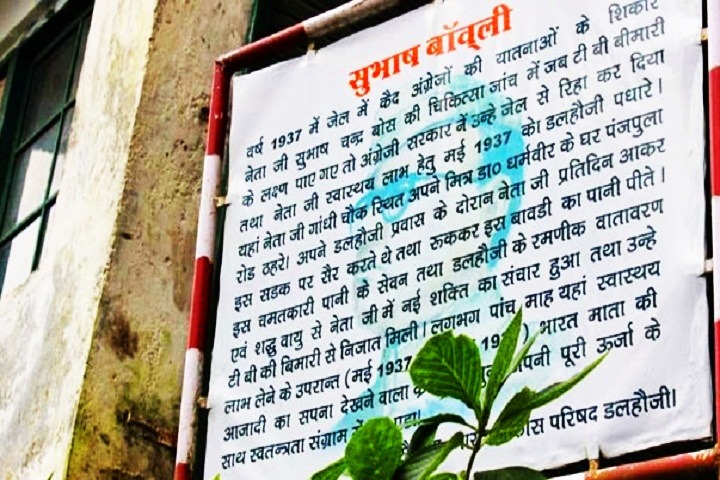 सुभाष बॉव्ली
वर्ष 1937 में जेल में कैद अंग्रेजों की यातनाओं के शिकार
नेता जी सुभाष चन्द्र बोस की चिकित्सा जांच में जब टी बी बीमारी
के लक्ष्ण पाए गए तो अंग्रेजी सरकार नें उन्हे जेल से रिहा कर दिया
तथा नेता जी स्वास्थय लाभ हेतु मई 1937 को डलहौजी पधारे।
यहां नेता जी गांधी चौक स्थित अपने मित्र डा० धर्मवीर के घर पंजपुला
रोड ठहरे। अपने डलहौजी प्रवास के दोरान नेता जी प्रतिदिन आकर
इस सडक पर सैर करते थे तथा रूककर इस बावडी का पानी पीते।
इस चमतकारी पानी के सेवन तथा डलहौजी के रमणीक वातावरण
एवं शद्धु वायु से नेता जी में नई शक्ति का संचार हुआ तथा उन्हे
टी बी की बिमारी से निजात मिली। लगभग पांच माह यहां स्वास्थय
लाभ लेने के उपरान्त (मई 1937 ) भारत माता की
आजादी का सपना देखने वाला पनी पूरी ऊर्जा के
साथ स्वतन्त्रता संग्राम
परिषद डलहौजी।